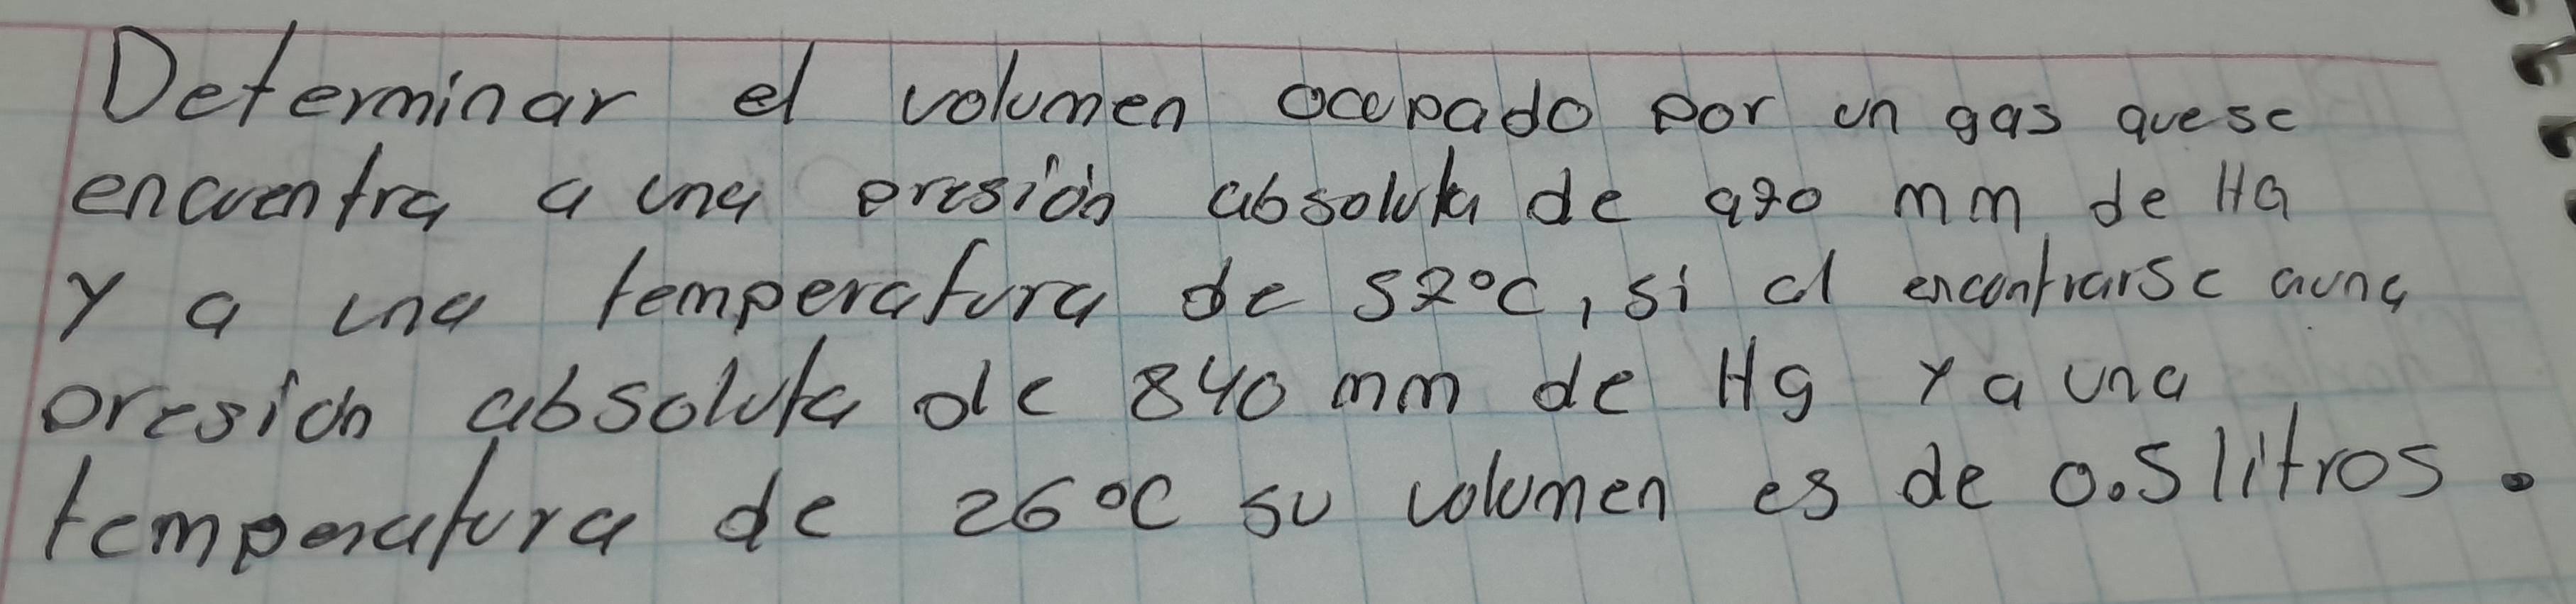 Determinar el volumen ocupado por un gas que se
encuentra a una presión absoluta de 970 mm de Hg
y a una temperatura de 57°C, si al encontrarse a una
presión absoluta de 840 mm de Hg y a una
temperatura de 26°C su volumen es de 0.5 litros.